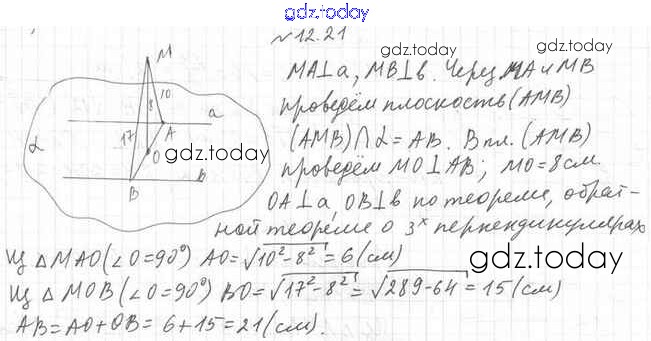 gdz.today
№12.21
gdz.today
M
MA⊥a, MB⊥b. Через MA и MB
проведём плоскость (AMB)
(AMB)∩α=AB. В пл. (AMB)
проведём MO⊥AB; MO=8см
OA⊥a, OB⊥b по теореме, обрат-
ной теореме о 3х перпендикулярах
8 10
17 A a
α O
gdz.today
B b
Из △MAO(∠O=90°) AO=√10²-8²=6(см)
gdz.today
Из △MOB(∠O=90°) BO=√17²-8²=√289-64=15(см)
AB=AO+OB=6+15=21(см).